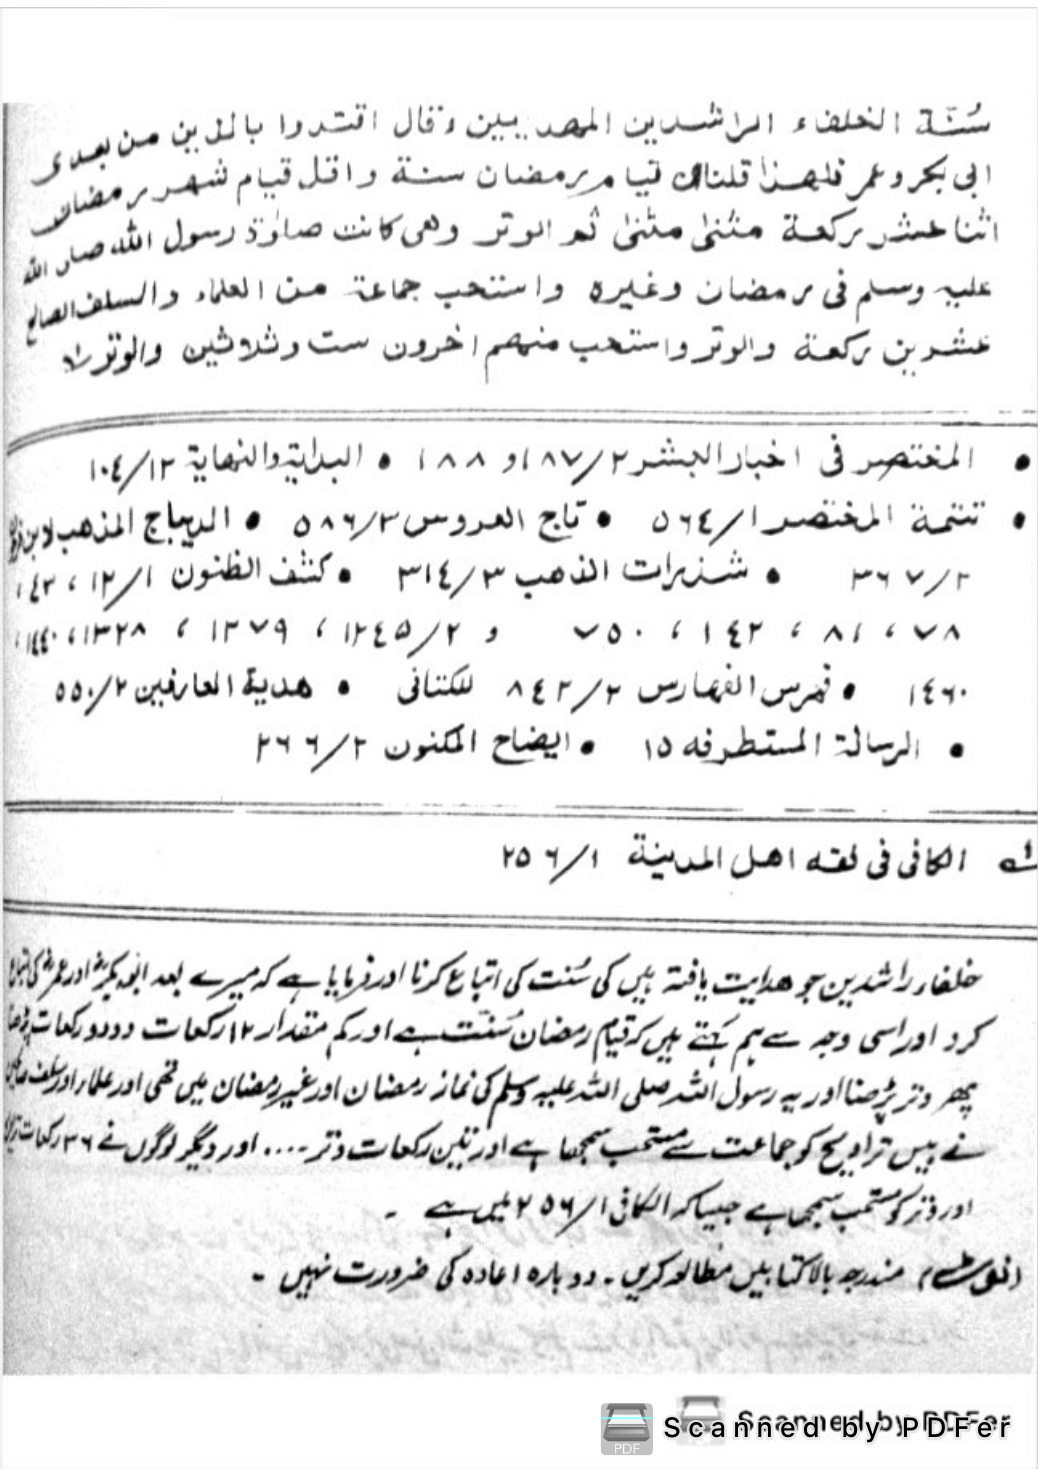 سُنّة الخلفاء الراشدين المهديين وقال اقتدوا بالذين من بعدى
ابى بكر وعمر فلهذا قلنا ان قيام رمضان سنة واقل قيام شهر رمضان
اثنا عشر ركعة مثنىٰ مثنىٰ ثم الوتر وهى كانت صلوٰة رسول الله صلى الله
عليه وسلم فى رمضان وغيره واستحب جماعة من العلماء والسلف الصالح
عشرين ركعة والوتر واستحب منهم اخرون ست وثلاثين والوتر
• المختصر فى اخبار البشر ٢/١٨٧ و ١٨٨ • البداية والنهاية ١٢/١٠٤
• تتمة المختصر ١/٥٦٤ • تاج العروس ٣/٥٨٦ • الديباج المذهب لابن
٢/٣٦٧ • شذرات الذهب ٣/٣١٤ • كشف الظنون ١/١٢ ، ٤٣ ،
٧٨ ، ٨١ ، ١٤٢ ، ٧٥٠ و ٢/١٢٤٥ ، ١٣٧٩ ، ١٣٢٨ ، ١٤٤٠ ،
١٤٦٠ • فهرس الفهارس ٢/٨٤٢ للكتانى • هدية العارفين ٢/٥٥٠
• الرسالة المستطرفه ١٥ • ايضاح المكنون ٢/٢٦٦
الكافى فى فقه اهل المدينة ١/٢٥٦
خلفاء راشدین جو ھدایت یافتہ ہیں کی سُنت کی اتباع کرنا اور فرمایا ہے کہ میرے بعد ابوبکرؓ اور عمرؓ کی اتباع
کرو اور اسی وجہ سے ہم کہتے ہیں کہ قیام رمضان سُنّت ہے اور کم مقدار ۱۲ رکعات دو دو رکعات پڑھنا
پھر وتر پڑھنا اور یہ رسول اللہ صلی اللہ علیہ وسلم کی نماز رمضان اور غیر رمضان میں تھی اور علماء اور سلف صالحین
نے بیس تراویح کو جماعت سے مستحب سمجھا ہے اور تین رکعات وتر .... اور دیگر لوگوں نے ۳۶ رکعات
اور وتر کو مستحب سمجھا ہے جیسا کہ الکافی ۱/۲۵۶ میں ہے ۔
(نوٹ) مندرجہ بالا کتابیں مطالعہ کریں ۔ دوبارہ اعادہ کی ضرورت نہیں ۔
PDF Scanned by PDFer
Scanned by PDFer